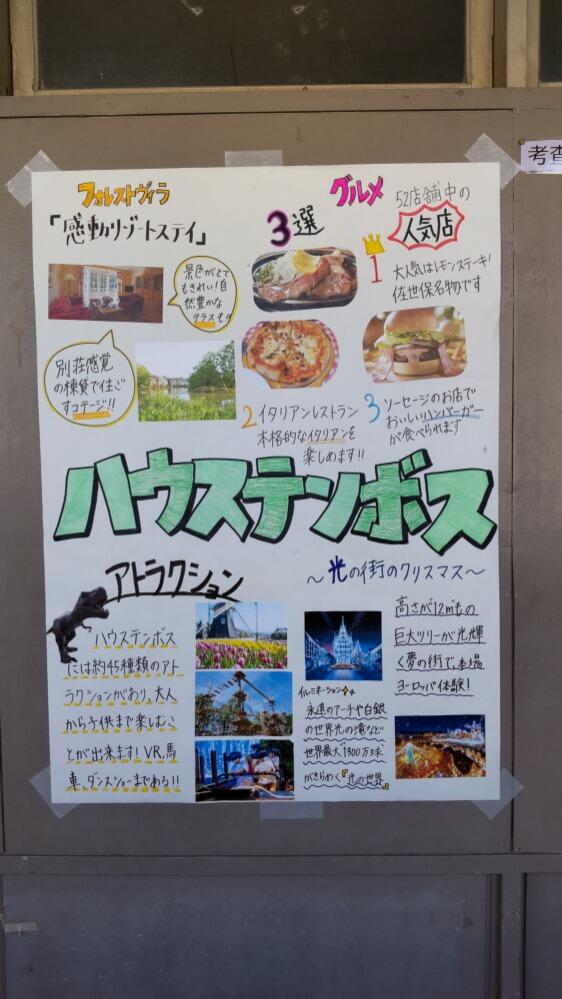 考査
フォレストヴィラ
「感動リゾートステイ」
景色がとて
もきれい!自
然豊かな
テラスも!!
別荘感覚
の棟貸で住ご
すコテージ!!
グルメ
3選
52店舗中の
人気店
1
大人気はレモンステーキ!
佐世保名物です
2 イタリアンレストラン
本格的なイタリアンを
楽しめます!!
3 ソーセージのお店で
おいしいハンバーガー
が食べられます
ハウステンボス
アトラクション
ハウステンボス
には約45種類のアト
ラクションがあり、大人
から子供まで楽しむこ
とが出来ます!VR、馬
車、ダンスショーまである!!
〜光の街のクリスマス〜
高さが12mもの
巨大ツリーが光輝
く夢の街で、本場
ヨーロッパ体験!
イルミネーション
永遠のアーチや白銀
の世界光の滝など
世界最大1300万球
がきらめく『光の世界』